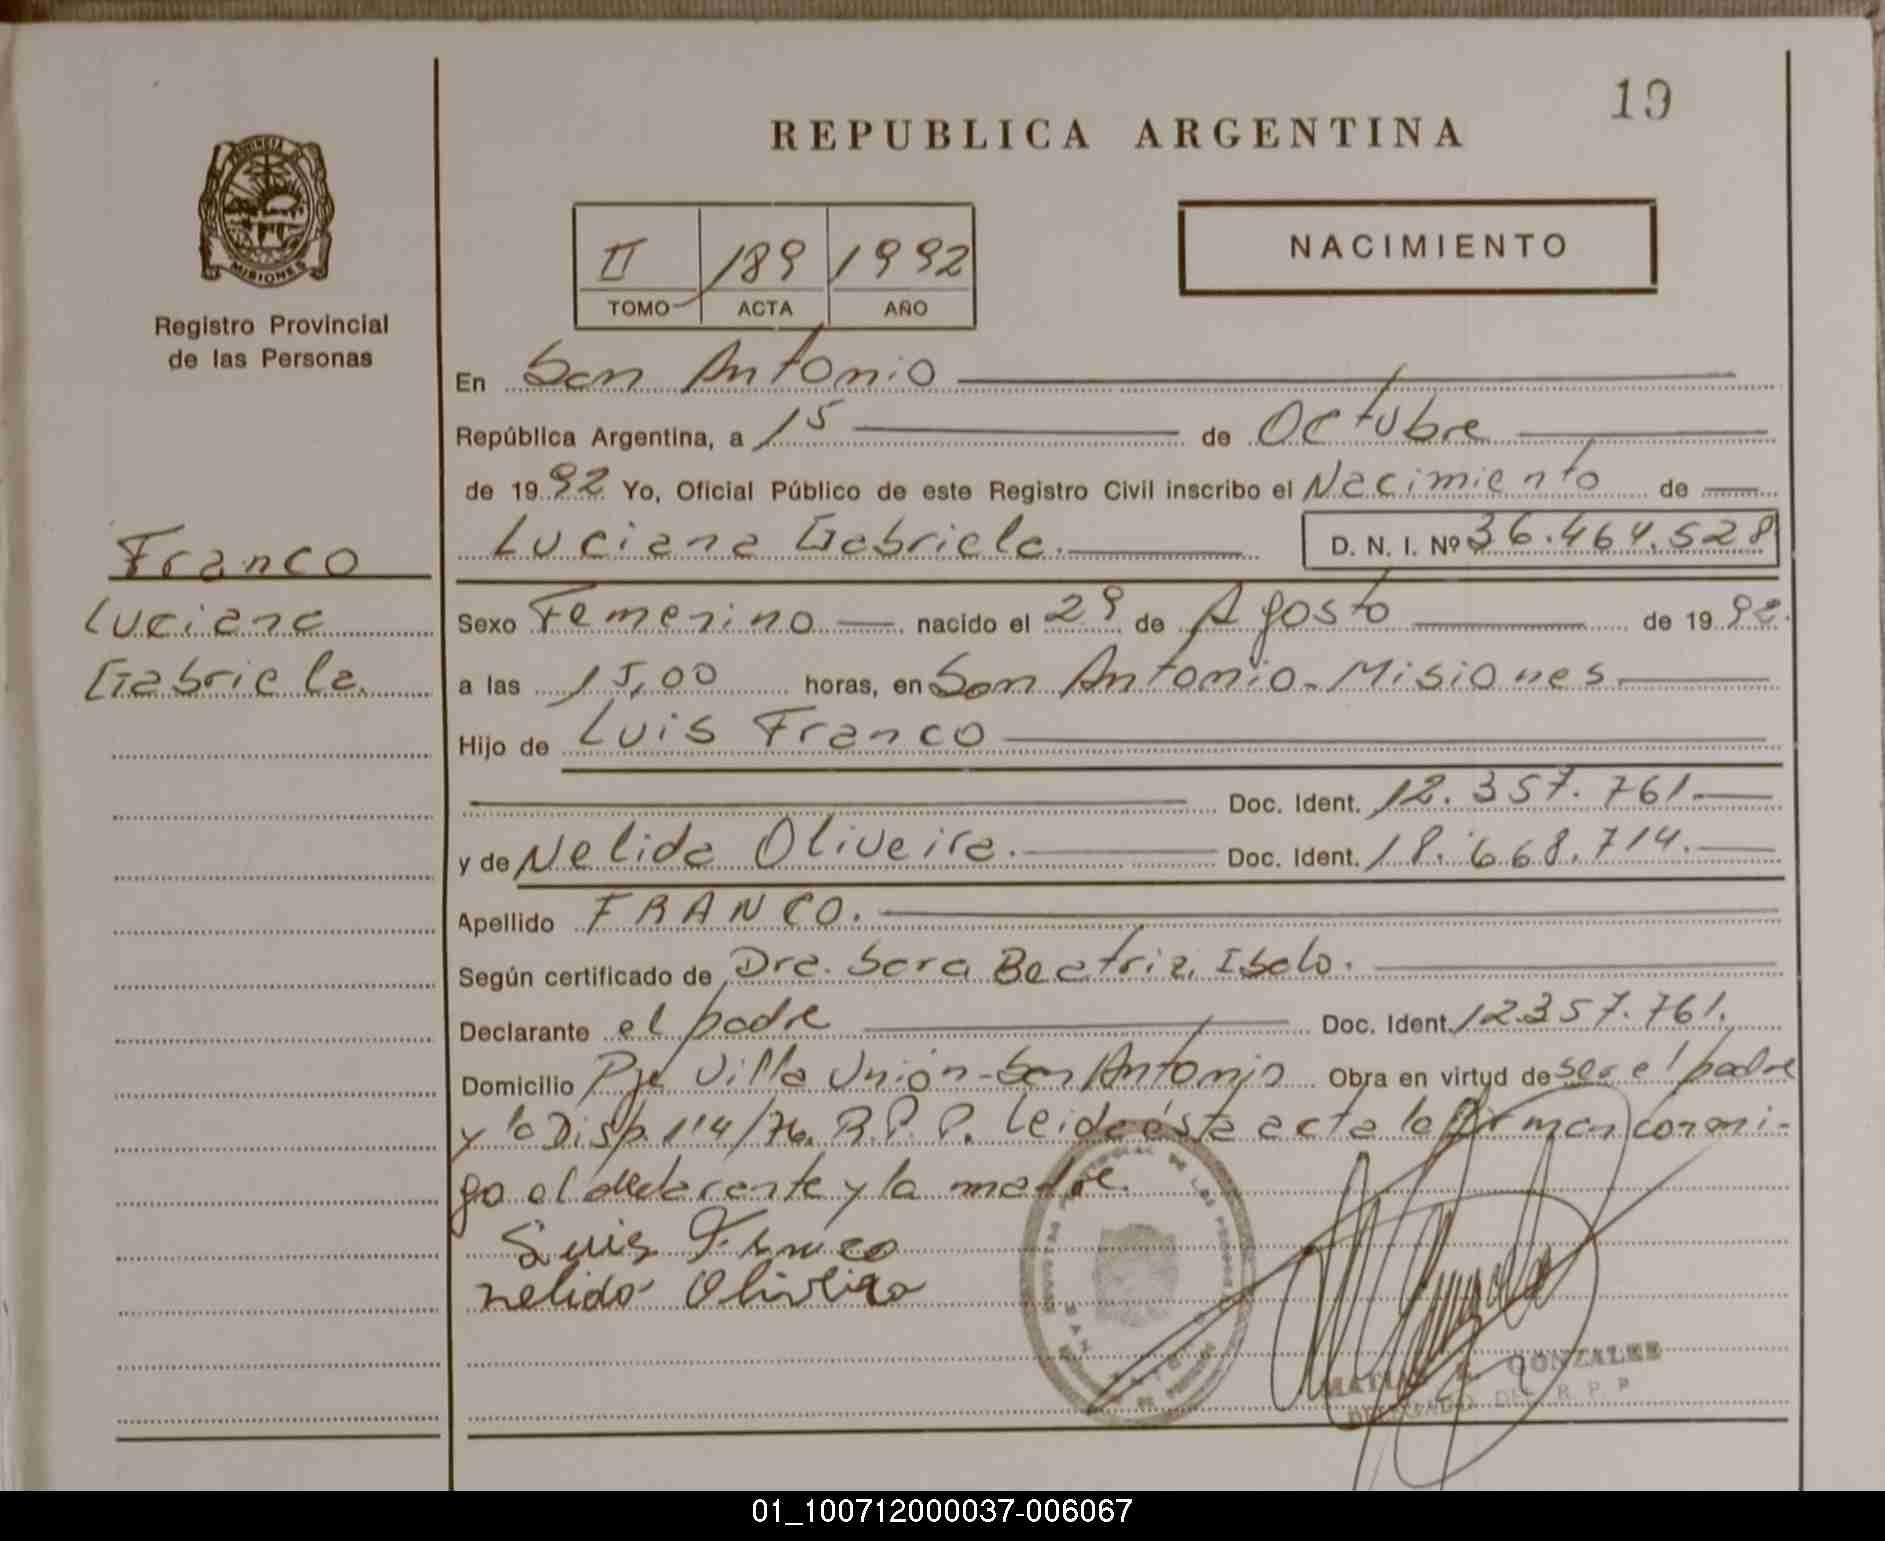 19
REPUBLICA ARGENTINA
PROVINCIA DE
MISIONES
Registro Provincial
de las Personas
II 189 1992
TOMO ACTA AÑO
NACIMIENTO
En San Antonio
República Argentina, a 15 de Octubre
de 1992 Yo, Oficial Público de este Registro Civil inscribo el Nacimiento de
Luciana Gabriela. D. N. I. Nº 36.464.528
Franco
Luciana
Gabriela.
Sexo Femenino nacido el 29 de Agosto de 1992.
a las 15,00 horas, en San Antonio - Misiones.
Hijo de Luis Franco
Doc. Ident. 12.357.761.
y de Nelida Oliveira. Doc. Ident. 18.668.714.
Apellido FRANCO.
Según certificado de Dra. Sara Beatriz Isolo.
Declarante el padre Doc. Ident. 12357.761.
Domicilio Pje Villa Unión - San Antonio Obra en virtud de ser el padre
y la Disp. 114/76. R.P.P. Leida ésta acta la firman conmi-
go el declarante y la madre.
Luis Franco
nelida Oliveira
GONZALES
DELEGADO DEL R. P. P
01_100712000037-006067